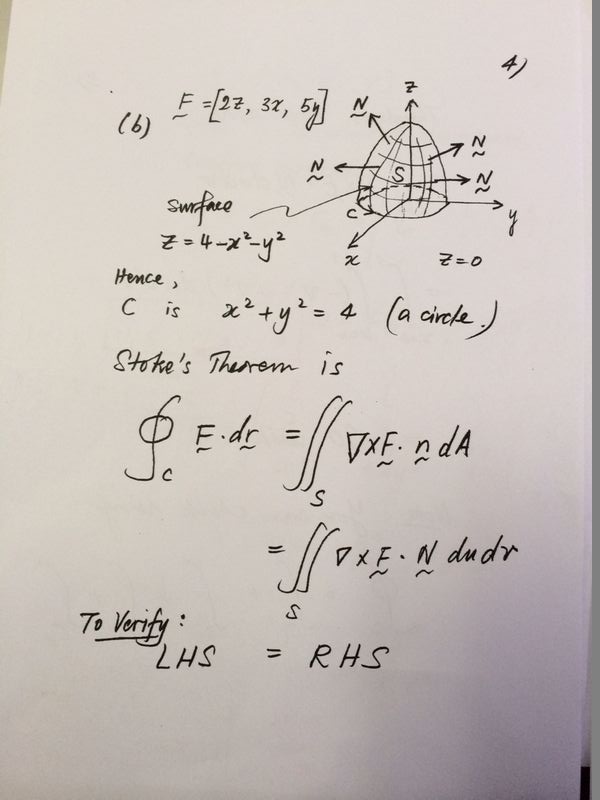 4)
(b) F = [2z, 3x, 5y]
z
N
N
N
N
S
C
y
x
z = 0
Surface
z = 4 - x² - y²
Hence,
C is x² + y² = 4 (a circle.)
Stoke's Theorem is
∮_C F · dr = ∬_S ∇×F · n dA
= ∬_S ∇×F · N du dv
To Verify:
LHS = RHS